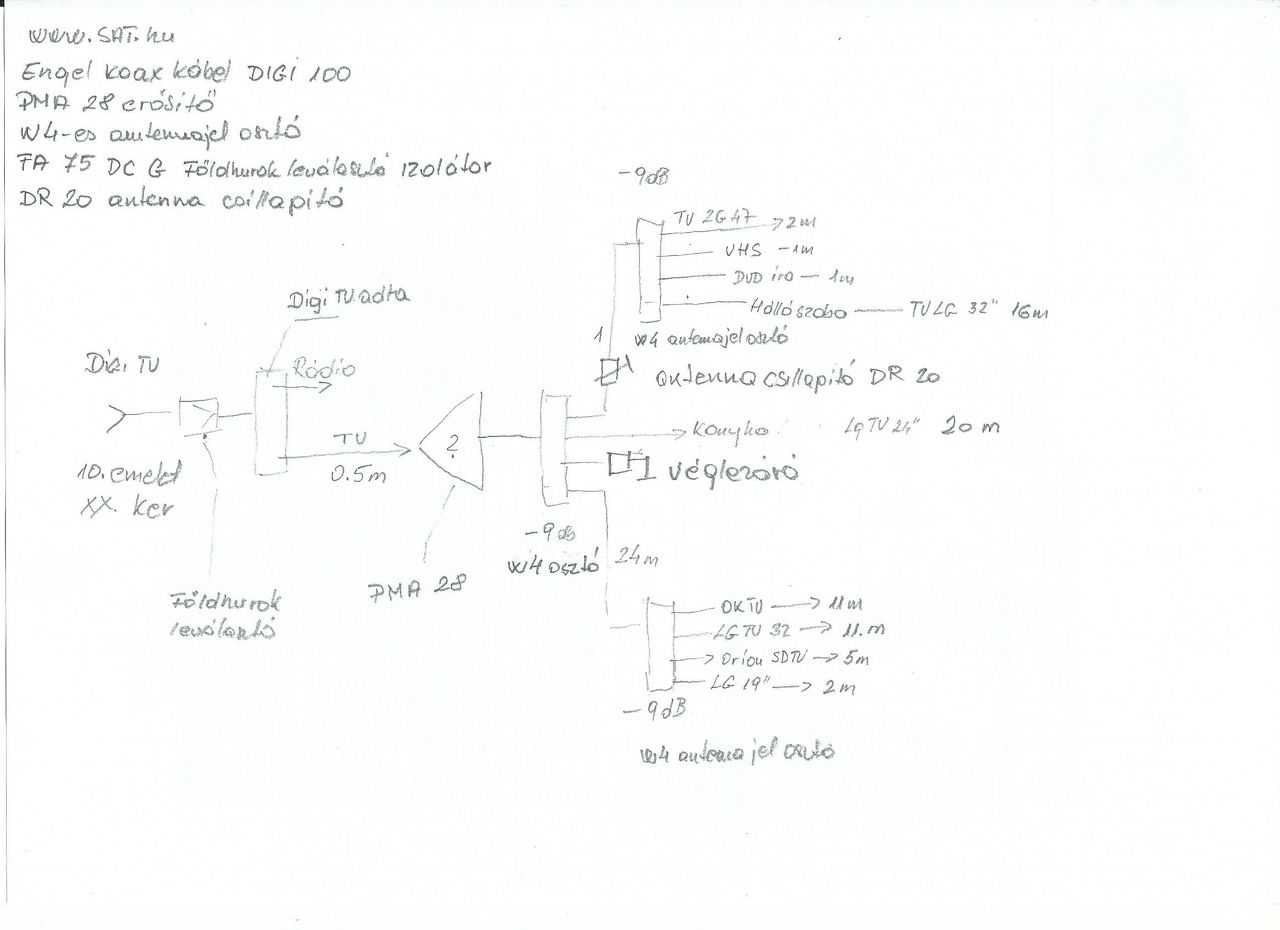 www.SAT.hu
Engel koax kábel DIGI 100
PMA 28 erősítő
W4-es antennajel osztó
FA 75 DC G Földhurok leválasztó izolátor
DR 20 antenna csillapító
-9dB
TV 2G47 2m
VHS -1m
DVD író - 1m
Hállószoba TV LG 32" 16m
1
W4 antennajel osztó
antenna csillapító DR 20
Digi TV adta
Digi TV
Rádió
TV
0.5m
?
Konyha LG TV 24" 20m
1 Véglezáró
10. emelet
XX. Ker
-9dB
W4 osztó
24m
PMA 28
Földhurok
leválasztó
OKTV 11m
LG TV 32 11.m
Orion SDTV 5m
LG 19" 2m
-9dB
W4 antenna jel osztó